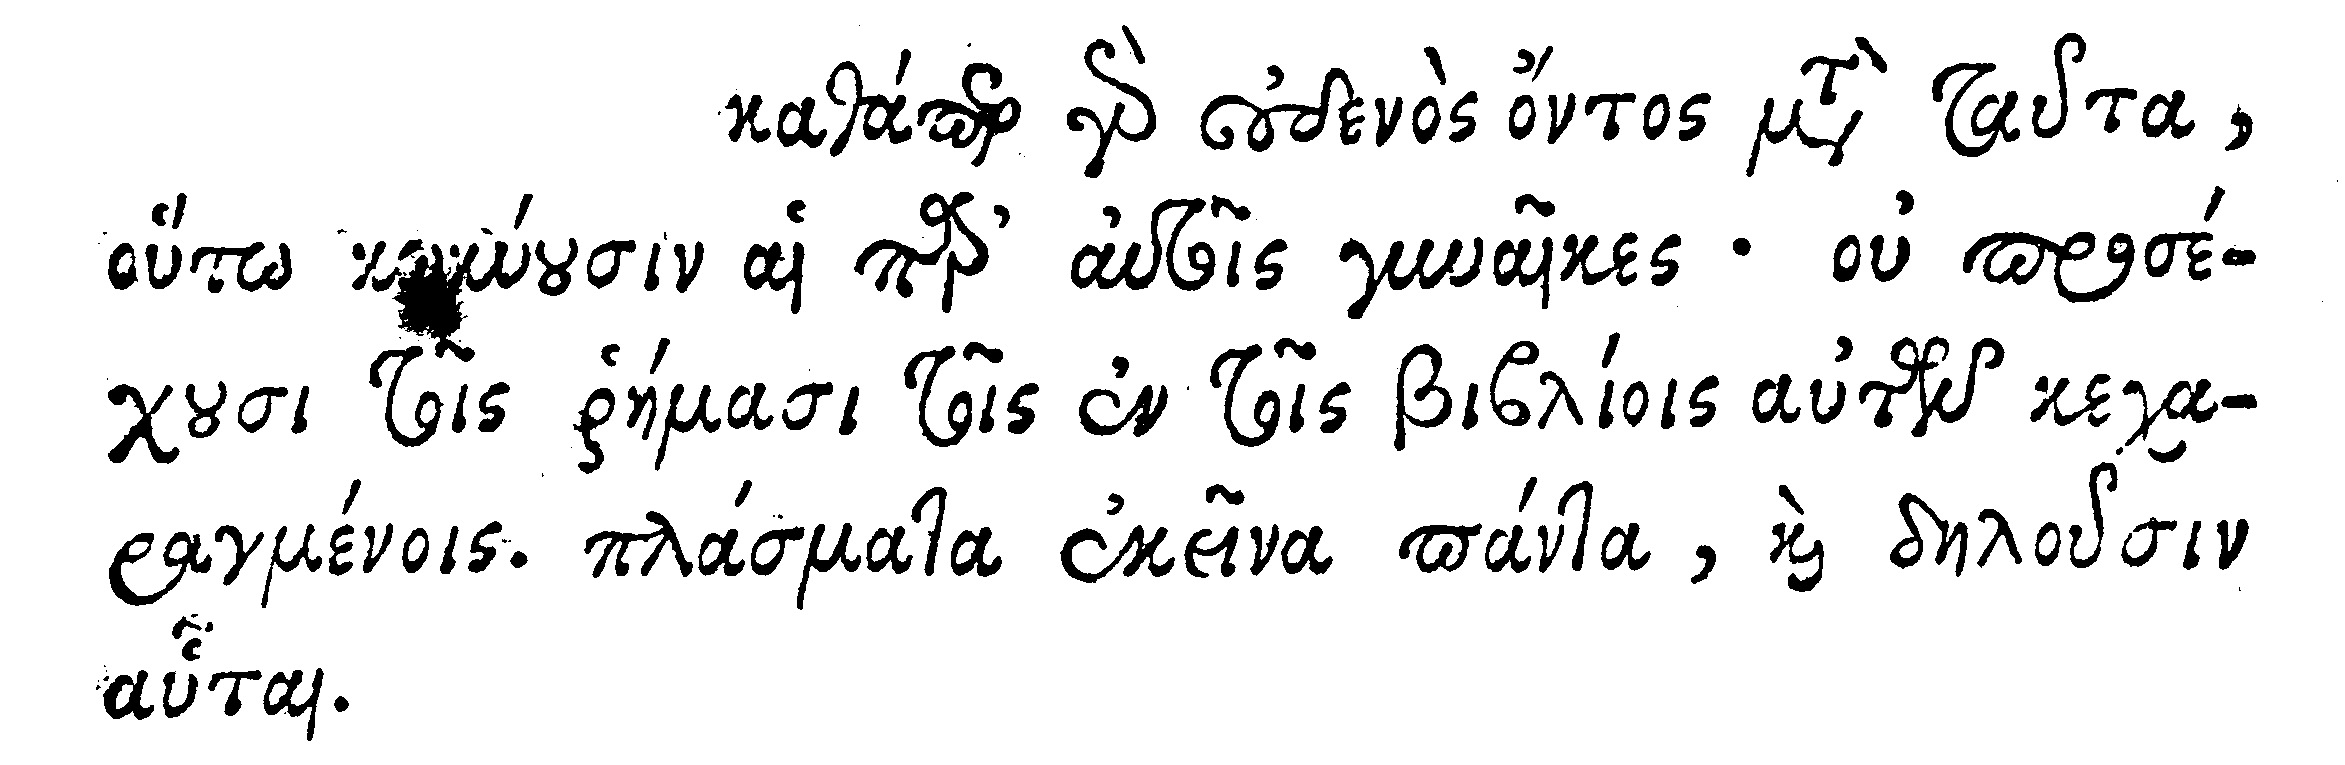 καθάπερ γὰρ οὐδενὸς ὄντος μετὰ ταῦτα,
οὕτω κωκύουσιν αἱ παρ’ αὐτοῖς γυναῖκες · οὐ προσέ-
χουσι τοῖς ῥήμασι τοῖς ἐν τοῖς βιβλίοις αὐτῶν κεχα-
ραγμένοις. πλάσματα ἐκεῖνα πάντα, καὶ δηλοῦσιν
αὗται.